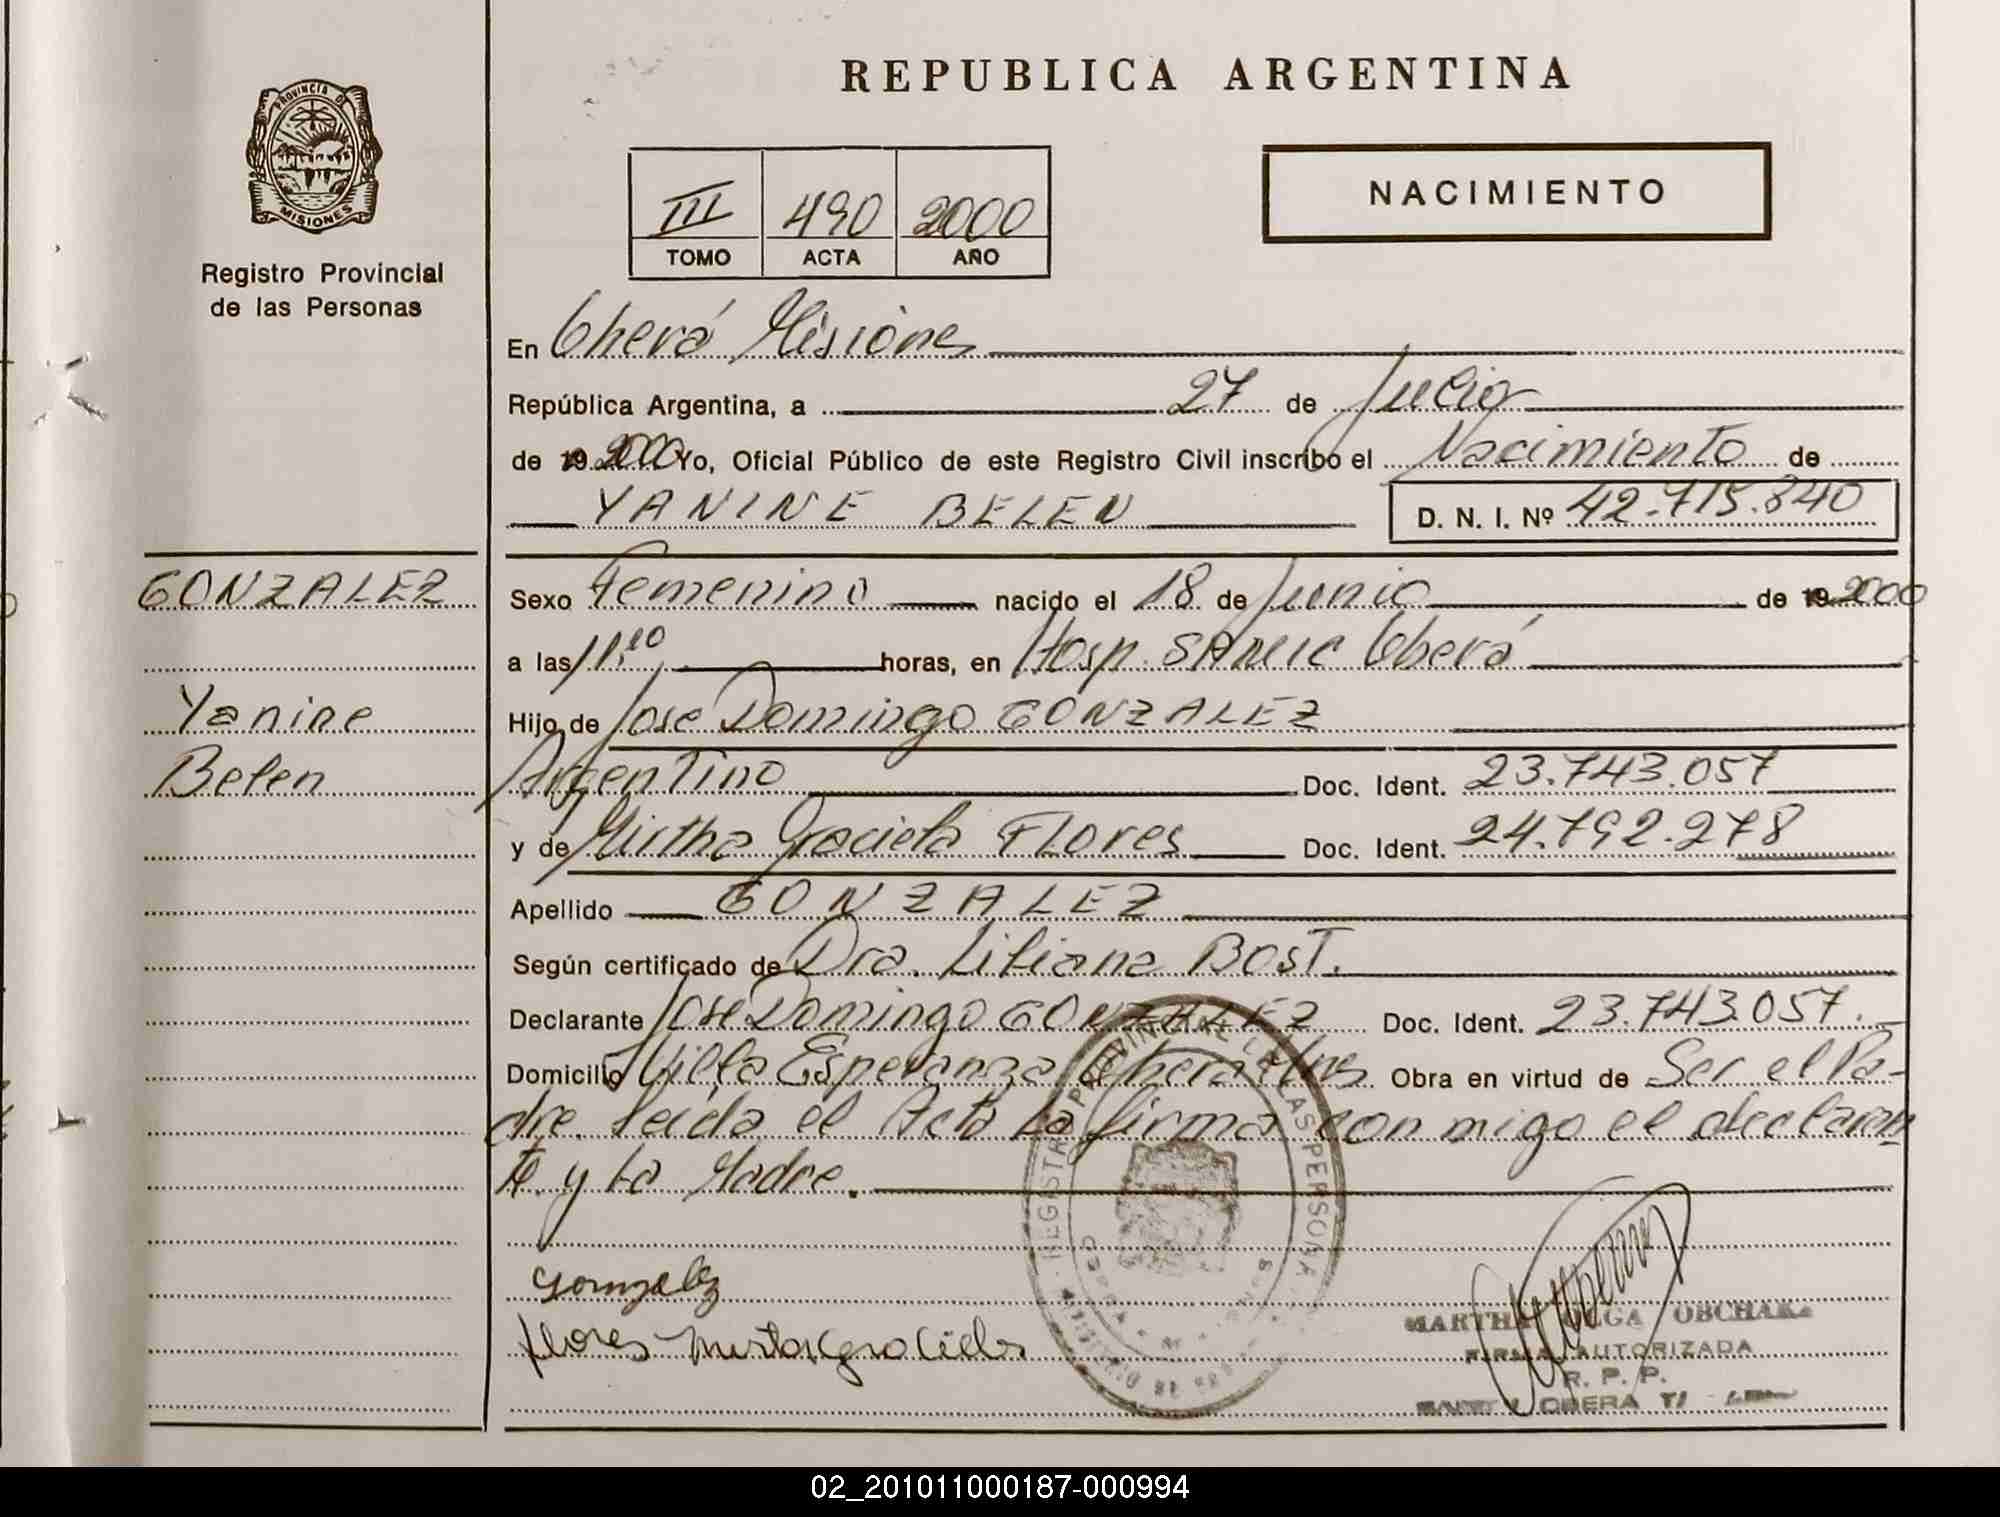 REPUBLICA ARGENTINA
PROVINCIA DE
MISIONES
Registro Provincial
de las Personas
III 490 2000
TOMO ACTA AÑO
NACIMIENTO
En Oberá Misiones
República Argentina, a 27 de Julio
de 19 2000 Yo, Oficial Público de este Registro Civil inscribo el Nacimiento de
YANINE BELEN D. N. I. Nº 42.715.840
GONZALEZ
Yanine
Belen
Sexo Femenino nacido el 18 de Junio de 19 2000
a las 11:10 horas, en Hosp. SAMIC Oberá
Hijo de Jose Domingo GONZALEZ
Argentino Doc. Ident. 23.743.057
y de Mirtha Graciela FLORES Doc. Ident. 24.792.278
Apellido GONZALEZ
Según certificado de Dra. Liliana BOST.
Declarante Jose Domingo GONZALEZ Doc. Ident. 23.743.057.
Domicilio Villa Esperanza Obera Mns Obra en virtud de Ser el Pa-
dre. leida el Acta la firma con migo el declaran
te y la Madre.
Gonzalez
flores Mirta graciela
REGISTRO PROVINCIAL DE LAS PERSONAS
MARTHA OLGA OBCHAR
FIRMA AUTORIZADA
R. P. P.
OBERA
02_201011000187-000994